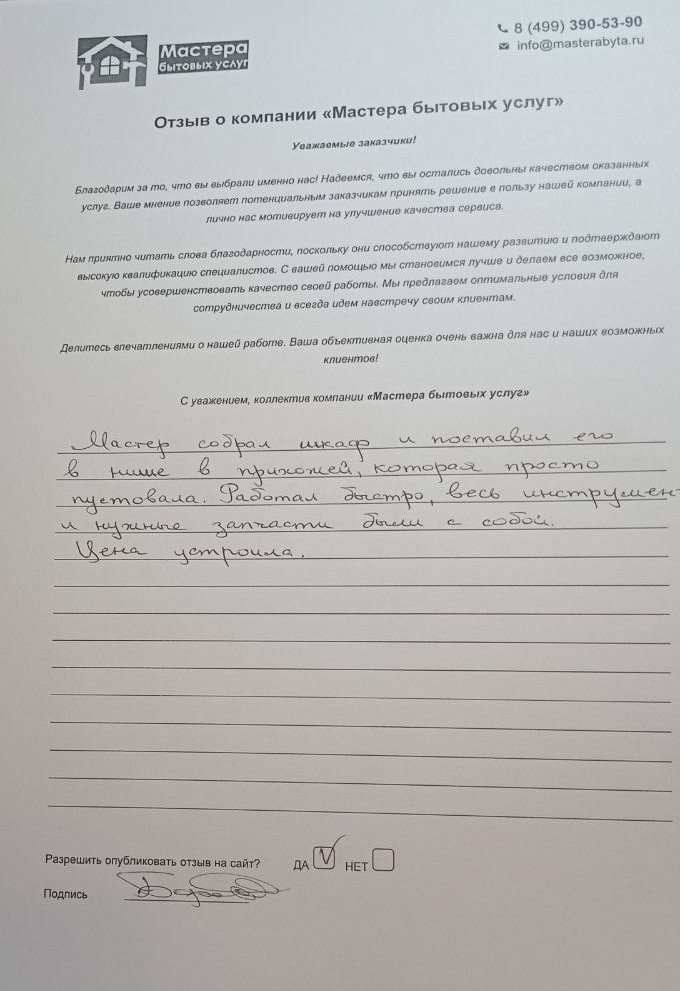 Мастера
бытовых услуг
8 (499) 390-53-90
info@masterabyta.ru
Отзыв о компании «Мастера бытовых услуг»
Уважаемые заказчики!
Благодарим за то, что вы выбрали именно нас! Надеемся, что вы остались довольны качеством оказанных
услуг. Ваше мнение позволяет потенциальным заказчикам принять решение в пользу нашей компании, а
лично нас мотивирует на улучшение качества сервиса.
Нам приятно читать слова благодарности, поскольку они способствуют нашему развитию и подтверждают
высокую квалификацию специалистов. С вашей помощью мы становимся лучше и делаем все возможное,
чтобы усовершенствовать качество своей работы. Мы предлагаем оптимальные условия для
сотрудничества и всегда идем навстречу своим клиентам.
Делитесь впечатлениями о нашей работе. Ваша объективная оценка очень важна для нас и наших возможных
клиентов!
С уважением, коллектив компании «Мастера бытовых услуг»
Мастер собрал шкаф и поставил его
в нише в прихожей, которая просто
пустовала. Работал быстро, весь инструмен
и нужные запчасти были с собой.
Цена устроила.
Разрешить опубликовать отзыв на сайт? ДА НЕТ
Подпись